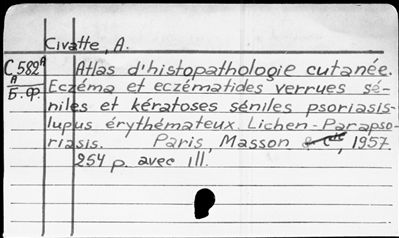 Civatte, A.
C582A Atlas d'histopathologie cutanée.
A
Б.Ф. Eczéma et eczématides verrues sé-
niles et kératoses séniles psoriasis-
lupus érythémateux. Lichen-Parapso-
riasis. Paris, Masson & Cie, 1957.
254 p. avec ill.